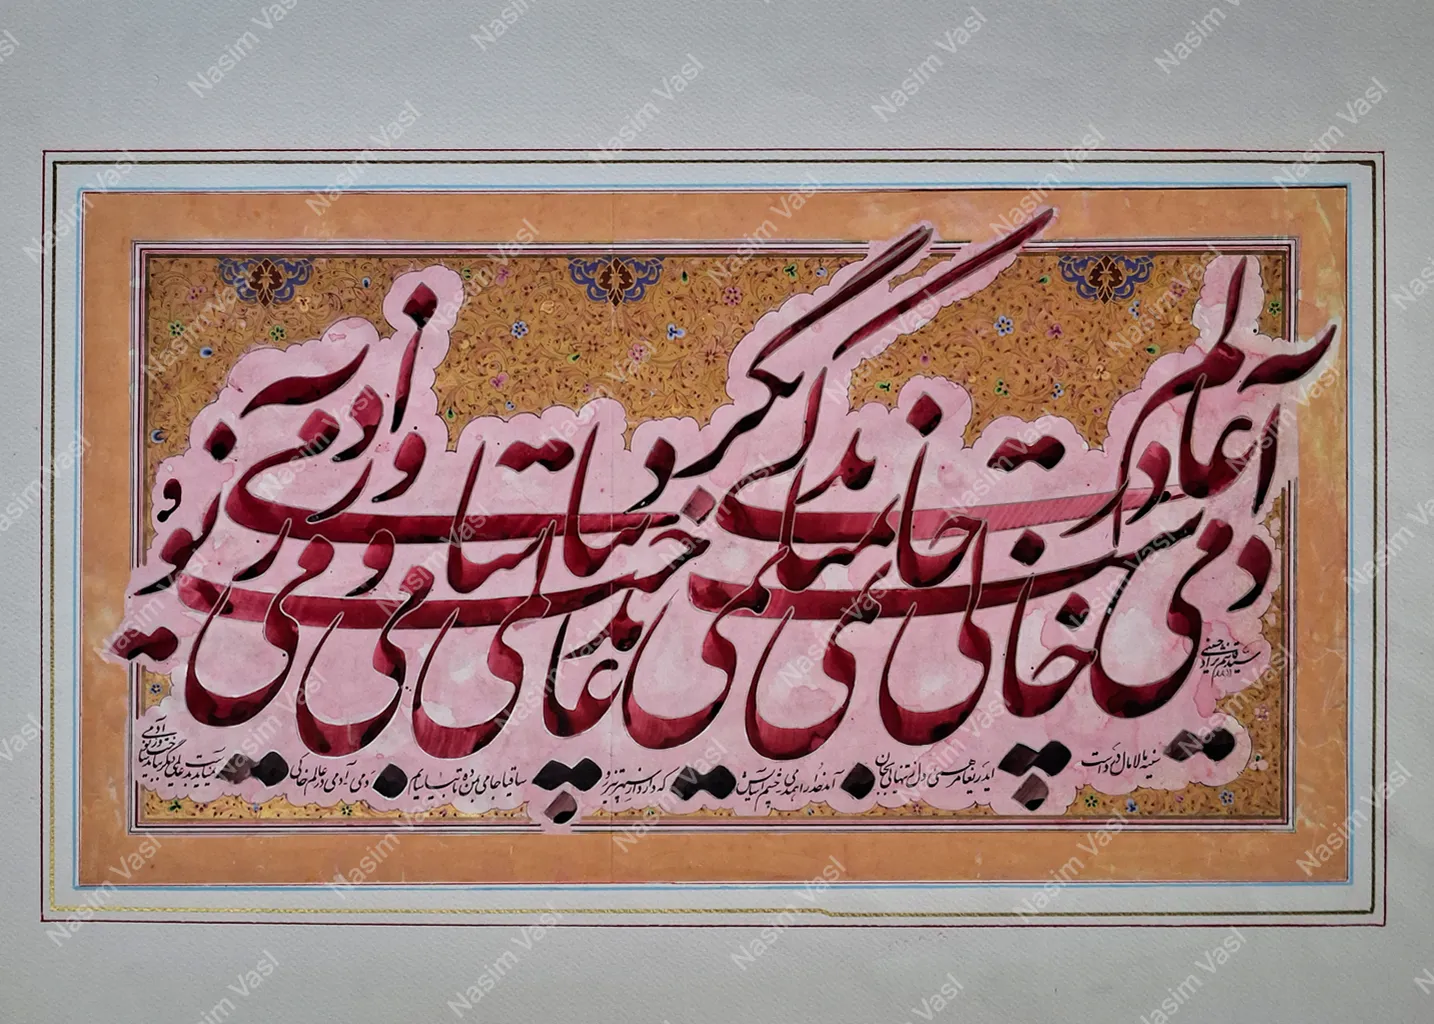 آدمی در عالم خاکی نمی‌آید بدست
عالمی دیگر بباید ساخت وز نو آدمی
سینه مالامال درد است
ای دریغا مرهمی دل ز تنهایی بجان
آمد خدا را همدمی چشم آسایش
که دارد از سپهر تیزرو
ساقیا جامی بمن ده تا بیاسایم
دمی آدمی در عالم خاکی
نمی‌آید بدست عالمی دیگر بباید ساخت
وز نو
آدمی
Nasim Vasl